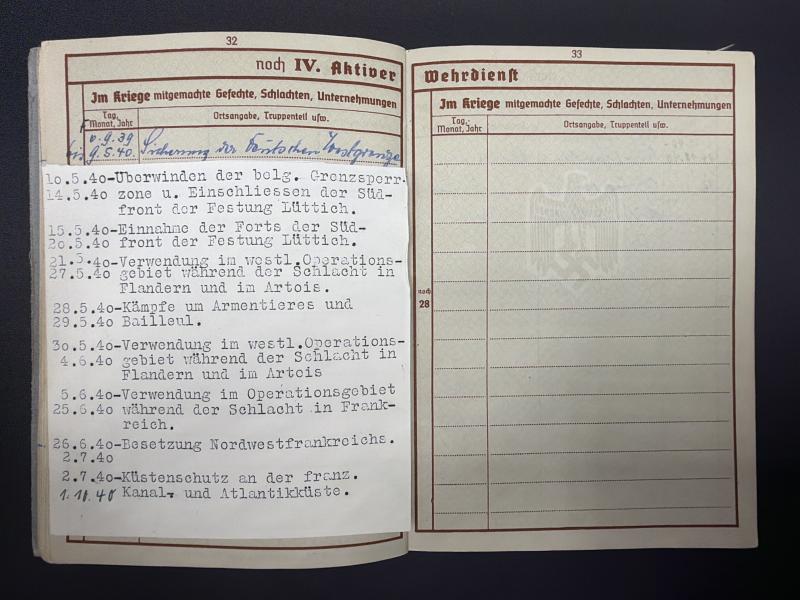 32
noch IV. Aktiver
Im Kriege mitgemachte Gefechte, Schlachten, Unternehmungen
Tag, Monat, Jahr
Ortsangabe, Truppenteil usw.
.9.39
bis 9.5.40. Sicherung der Deutschen Westgrenze
1o.5.4o-Uberwinden der belg. Grenzsperr-
14.5.4o zone u. Einschliessen der Süd-
front der Festung Lüttich.
15.5.4o-Einnahme der Forts der Süd-
2o.5.4o front der Festung Lüttich.
21.5.4o-Verwendung im westl.Operations-
27.5.4o gebiet während der Schlacht in
Flandern und im Artois.
28.5.4o-Kämpfe um Armentieres und
29.5.4o Bailleul.
3o.5.4o-Verwendung im westl.Operations-
4.6.4o gebiet während der Schlacht in
Flandern und im Artois
5.6.4o-Verwendung im Operationsgebiet
25.6.4o während der Schlacht in Frank-
reich.
26.6.4o-Besetzung Nordwestfrankreichs.
2.7.4o
2.7.4o-Küstenschutz an der franz.
1.10.40 Kanal- und Atlantikküste.
33
Wehrdienst
Im Kriege mitgemachte Gefechte, Schlachten, Unternehmungen
Tag, Monat, Jahr
Ortsangabe, Truppenteil usw.
noch
28